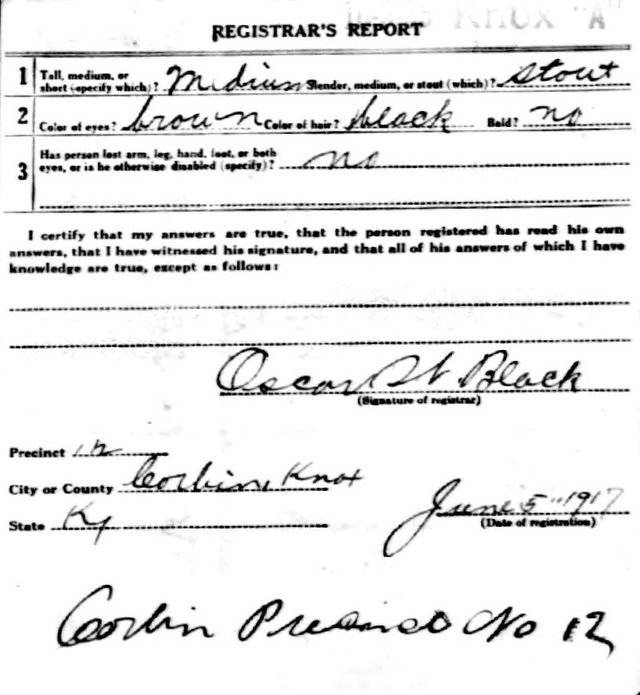 Knox "A"
REGISTRAR'S REPORT
1 Tall, medium, or short (specify which)? Medium Slender, medium, or stout (which)? stout
2 Color of eyes? brown Color of hair? black Bald? no
3 Has person lost arm, leg, hand, foot, or both eyes, or is he otherwise disabled (specify)? no
I certify that my answers are true, that the person registered has read his own
answers, that I have witnessed his signature, and that all of his answers of which I have
knowledge are true, except as follows:
Oscar W. Black
(Signature of registrar)
Precinct 12
City or County Corbin, Knox
State Ky
June 5" 1917
(Date of registration)
Corbin Precinct No 12